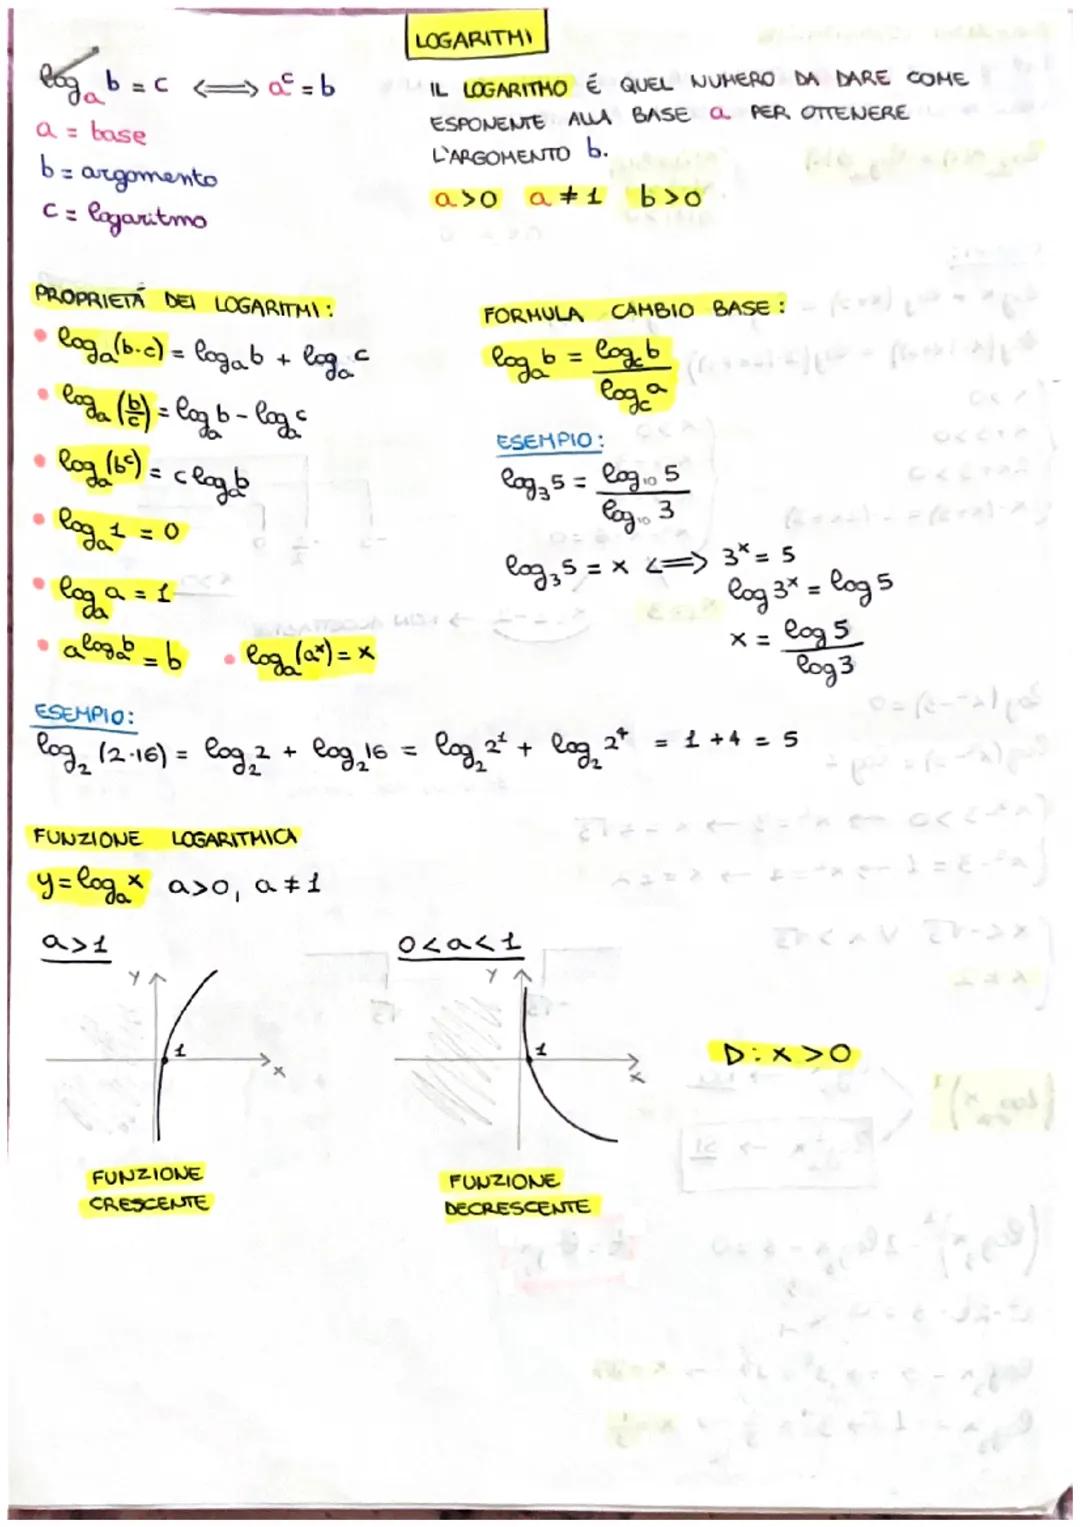 LOGARITMI
logₐ b = c ⟺ aᶜ = b
a = base
b = argomento
c = logaritmo
IL LOGARITMO É QUEL NUMERO DA DARE COME
ESPONENTE ALLA BASE a PER OTTENERE
L'ARGOMENTO b.
a>0 a≠1 b>0
PROPRIETÁ DEI LOGARITMI:
• logₐ(b·c) = logₐb + logₐc
• logₐ(b/c) = logₐb - logₐc
• logₐ(bᶜ) = c logₐb
• logₐ1 = 0
• logₐa = 1
• a^(logₐb) = b • logₐ(aˣ) = x
FORMULA CAMBIO BASE:
logₐb = log_c b / log_c a
ESEMPIO:
log₃5 = log₁₀5 / log₁₀3
log₃5 = x ⟺ 3ˣ = 5
log3ˣ = log5
x = log5 / log3
ESEMPIO:
log₂(2·16) = log₂2 + log₂16 = log₂2¹ + log₂2⁴ = 1+4 = 5
FUNZIONE LOGARITMICA
y=logₐx a>0, a≠1
a>1
y
1
x
FUNZIONE
CRESCENTE
0<a<1
y
1
x
FUNZIONE
DECRESCENTE
D: x>0